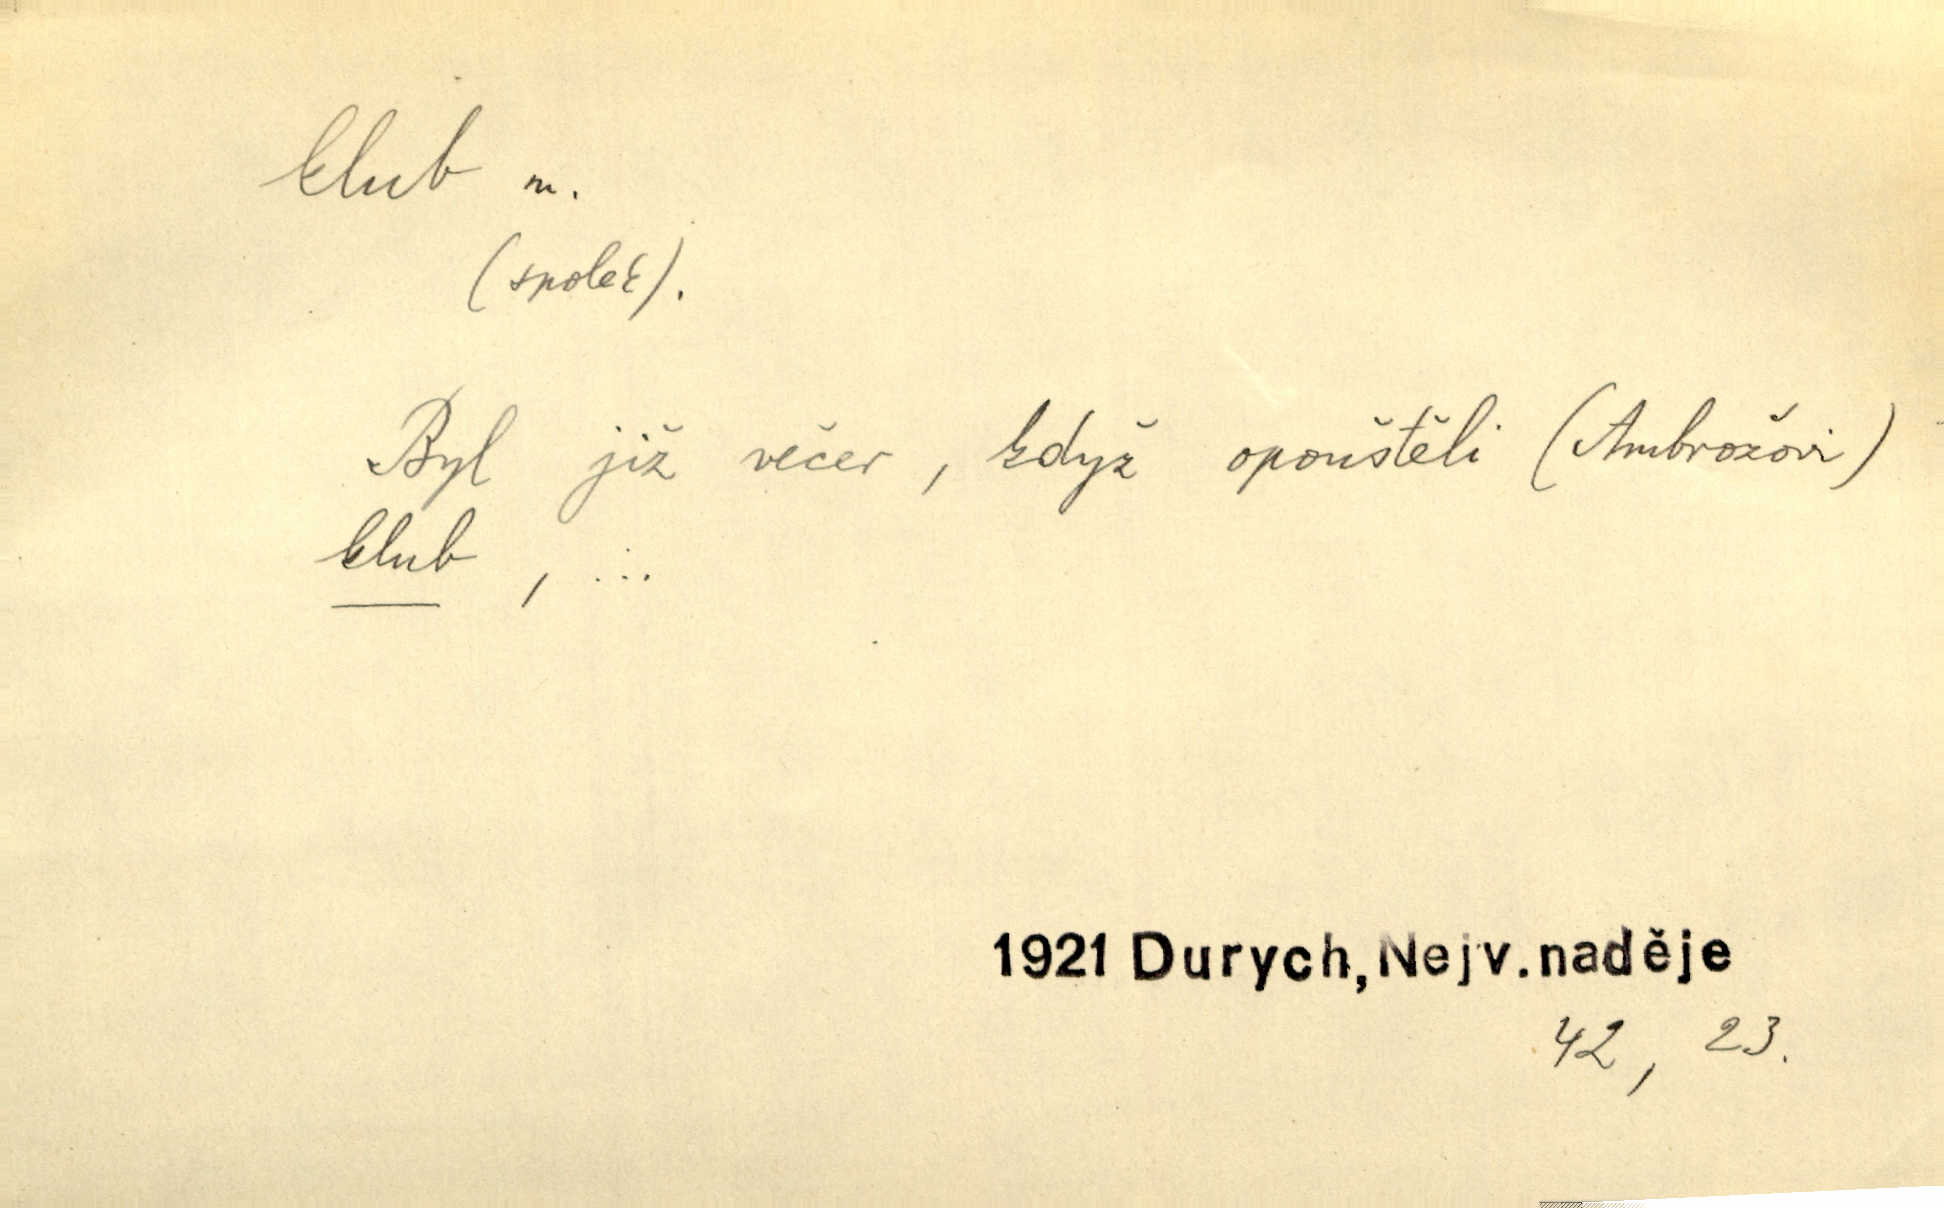 klub m.
(společ).
Byl již večer, když opouštěli (Ambrožovi)
klub, ...
1921 Durych, Nejv. naděje
42, 23.